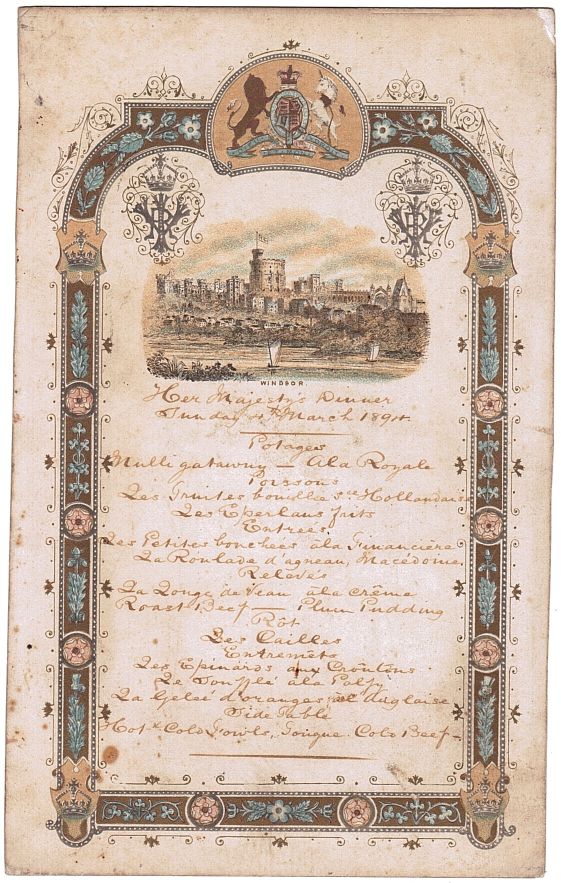 WINDSOR.
Her Majesty's Dinner
Sunday 4th March 1894.
Potages
Mulligatawny — A la Royale
Poissons
Les Truites bouillie sce Hollandaise
Les Eperlans frits
Entrées
Les Petites bouchées à la Financière
La Roulade d'agneau, Macédoine
Relevés
La Longe de Veau à la crême
Roast Beef — Plum Pudding
Rôt
Les Cailles
Entremets
Les Epinards aux Croûtons
Le Soufflé à la
La Geleé d'oranges al' Anglaise
Side Table
Hot & Cold Fowls, Tongue Cold Beef —